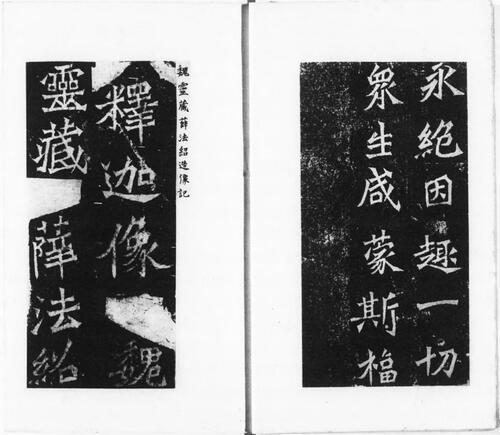 永絶因趣一切
衆生咸蒙斯福
魏靈藏薛法紹造像記
釋迦像魏
靈藏薛法紹